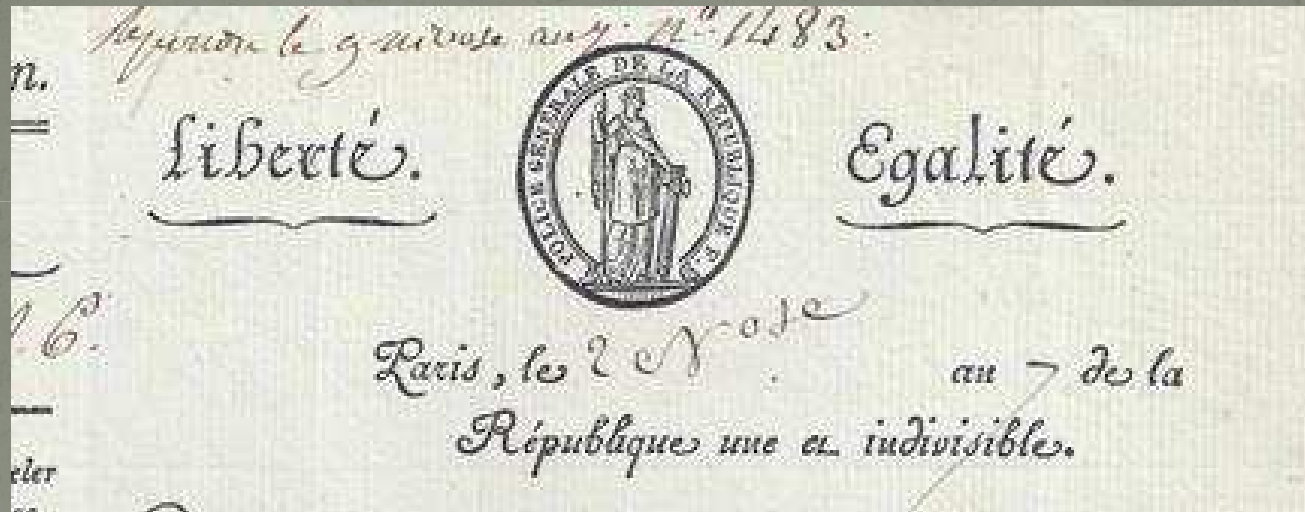 le 9 nivose an 7. nº. 1483.
n.
Liberté.
POLICE GENERALE DE LA REPUBLIQUE F.
Egalité.
6.
Paris, le 2 Nose an 7 de la
République une et indivisible.
eler